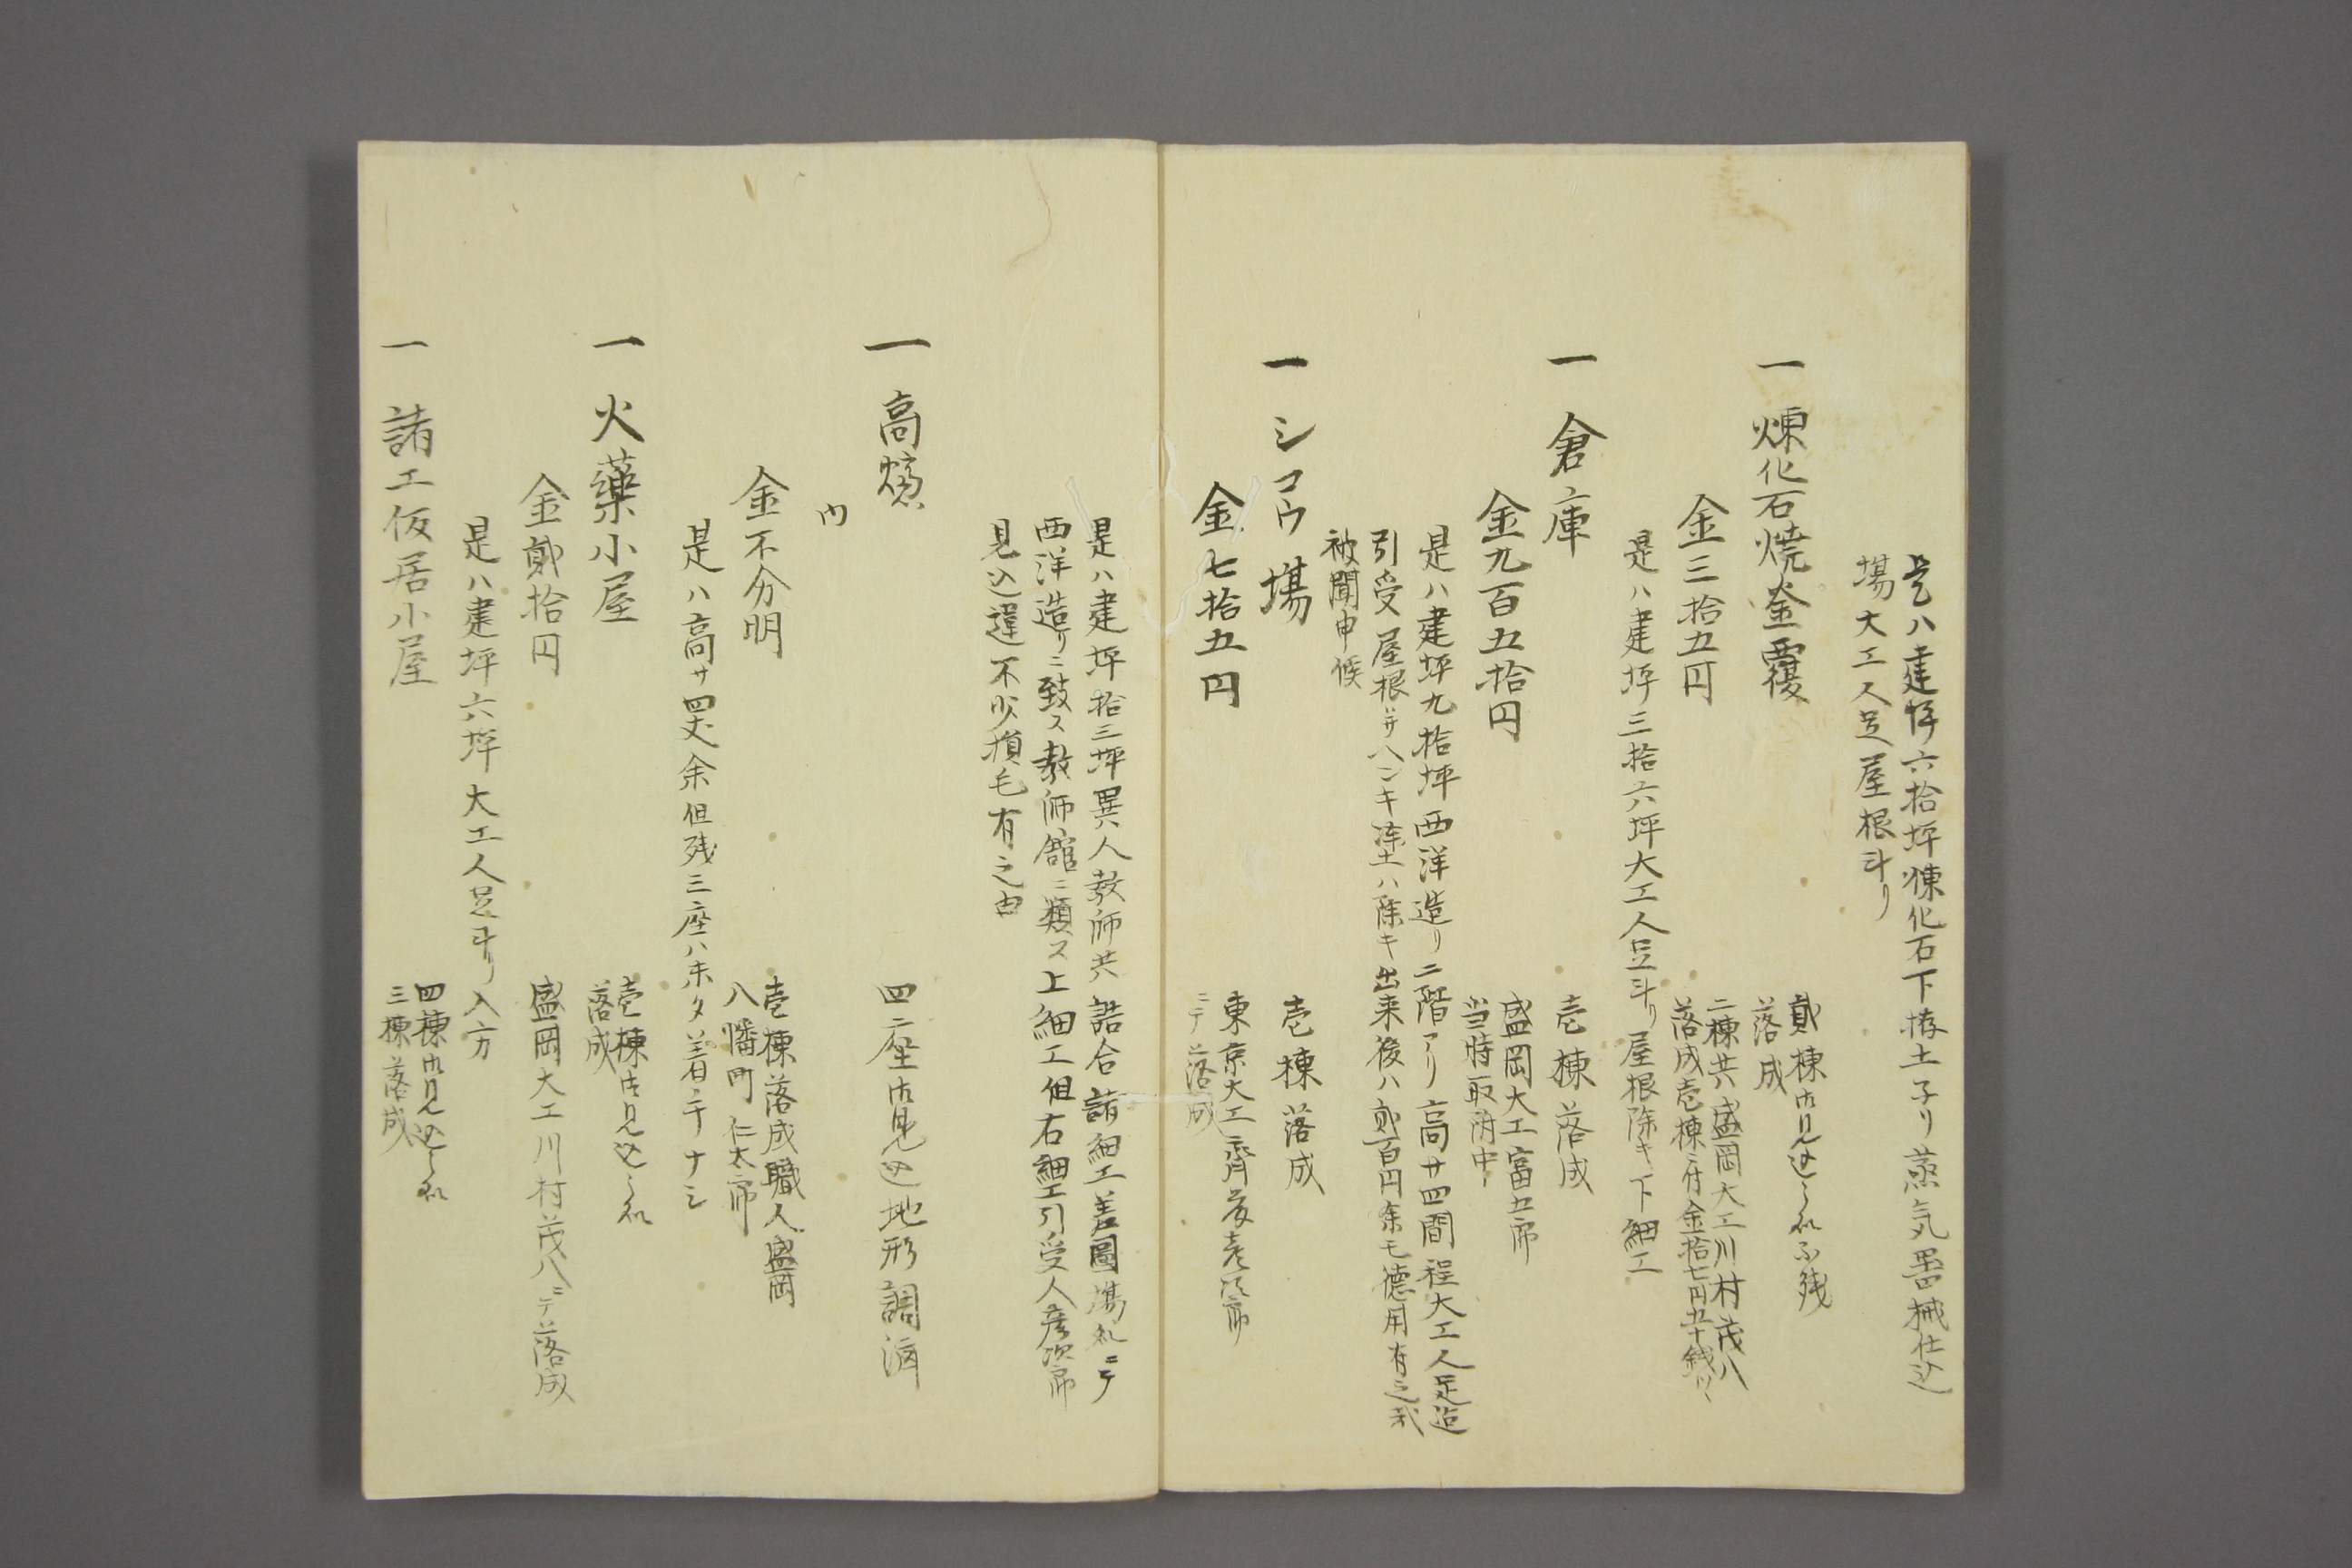 是ハ建坪六拾坪煉化石下拵土子リ蒸気器械仕込
場大工人足屋根斗リ
一 煉化石焼釜覆
貳棟御見込之処不残
落成
金三拾五円
二棟共盛岡大工川村茂八
落成壱棟ニ付金拾七円五十銭ツヽ
是ハ建坪三拾六坪大工人足斗リ屋根除キ下細工
一 倉庫
壱棟落成
金九百五拾円
盛岡大工富五郎
当時取附中
是ハ建坪九拾坪西洋造リ二階アリ高サ四間程大工人足迄
引受屋根ハサヘンキ塗土ハ除キ出来後ハ貳百円余モ徳用有之哉
被聞申候
一 シコウ場
壱棟落成
金七拾五円
東京大工齊藤
ニテ落成
是ハ建坪拾三坪異人教師共詰合諸細工差圖場処ニテ
西洋造リニ致ス教師館ニ類ス上細工但右細工引受人彦次郎
見込違不少損毛有之由
一 高
四座御見込地形調済
内
金不分明
壱棟落成職人盛岡
八幡町仁太郎
是ハ高サ四丈余但残三座ハ未タ着手ナシ
一 火藥小屋
壱棟御見込之処
落成
金貳拾円
盛岡大工川村茂八ニテ落成
是ハ建坪六坪大工人足斗リ入方
一 諸工仮居小屋
四棟御見込之処
三棟落成